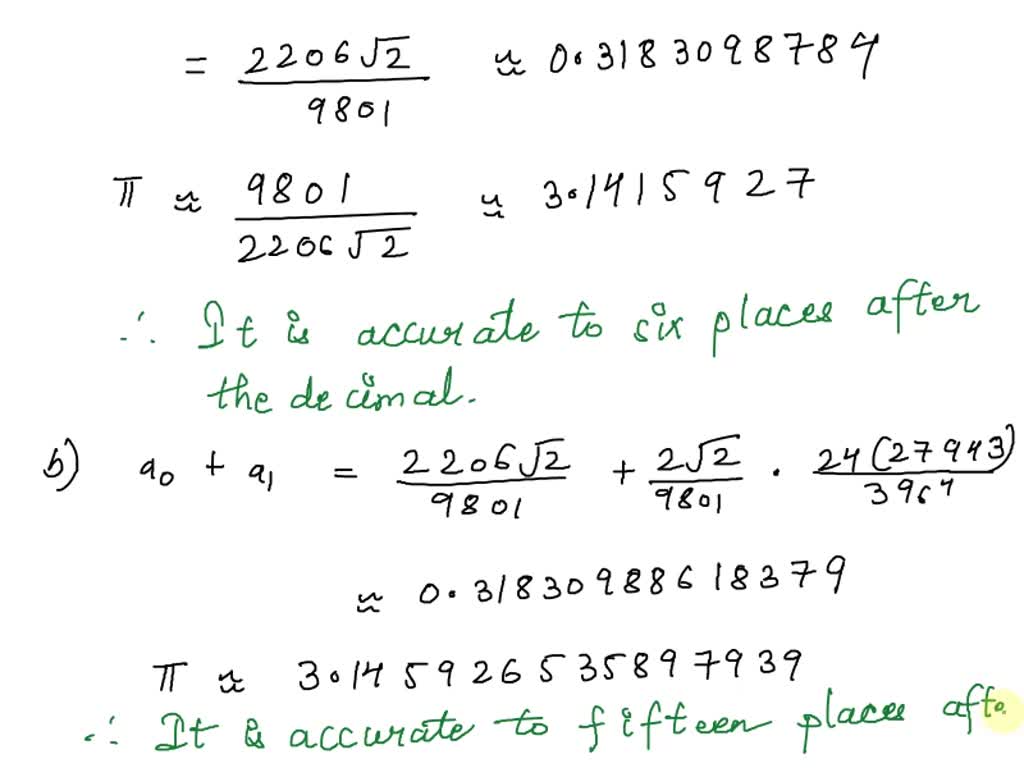 = 2206√2 / 9801 ≈ 0.3183098784
π ≈ 9801 / 2206√2 ≈ 3.1415927
∴ It is accurate to six places after
the decimal.
b) a₀ + a₁ = 2206√2 / 9801 + 2√2 / 9801 · 24(27493) / 396⁴
≈ 0.31830988618379
π ≈ 3.145926535897939
∴ It is accurate to fifteen places afte